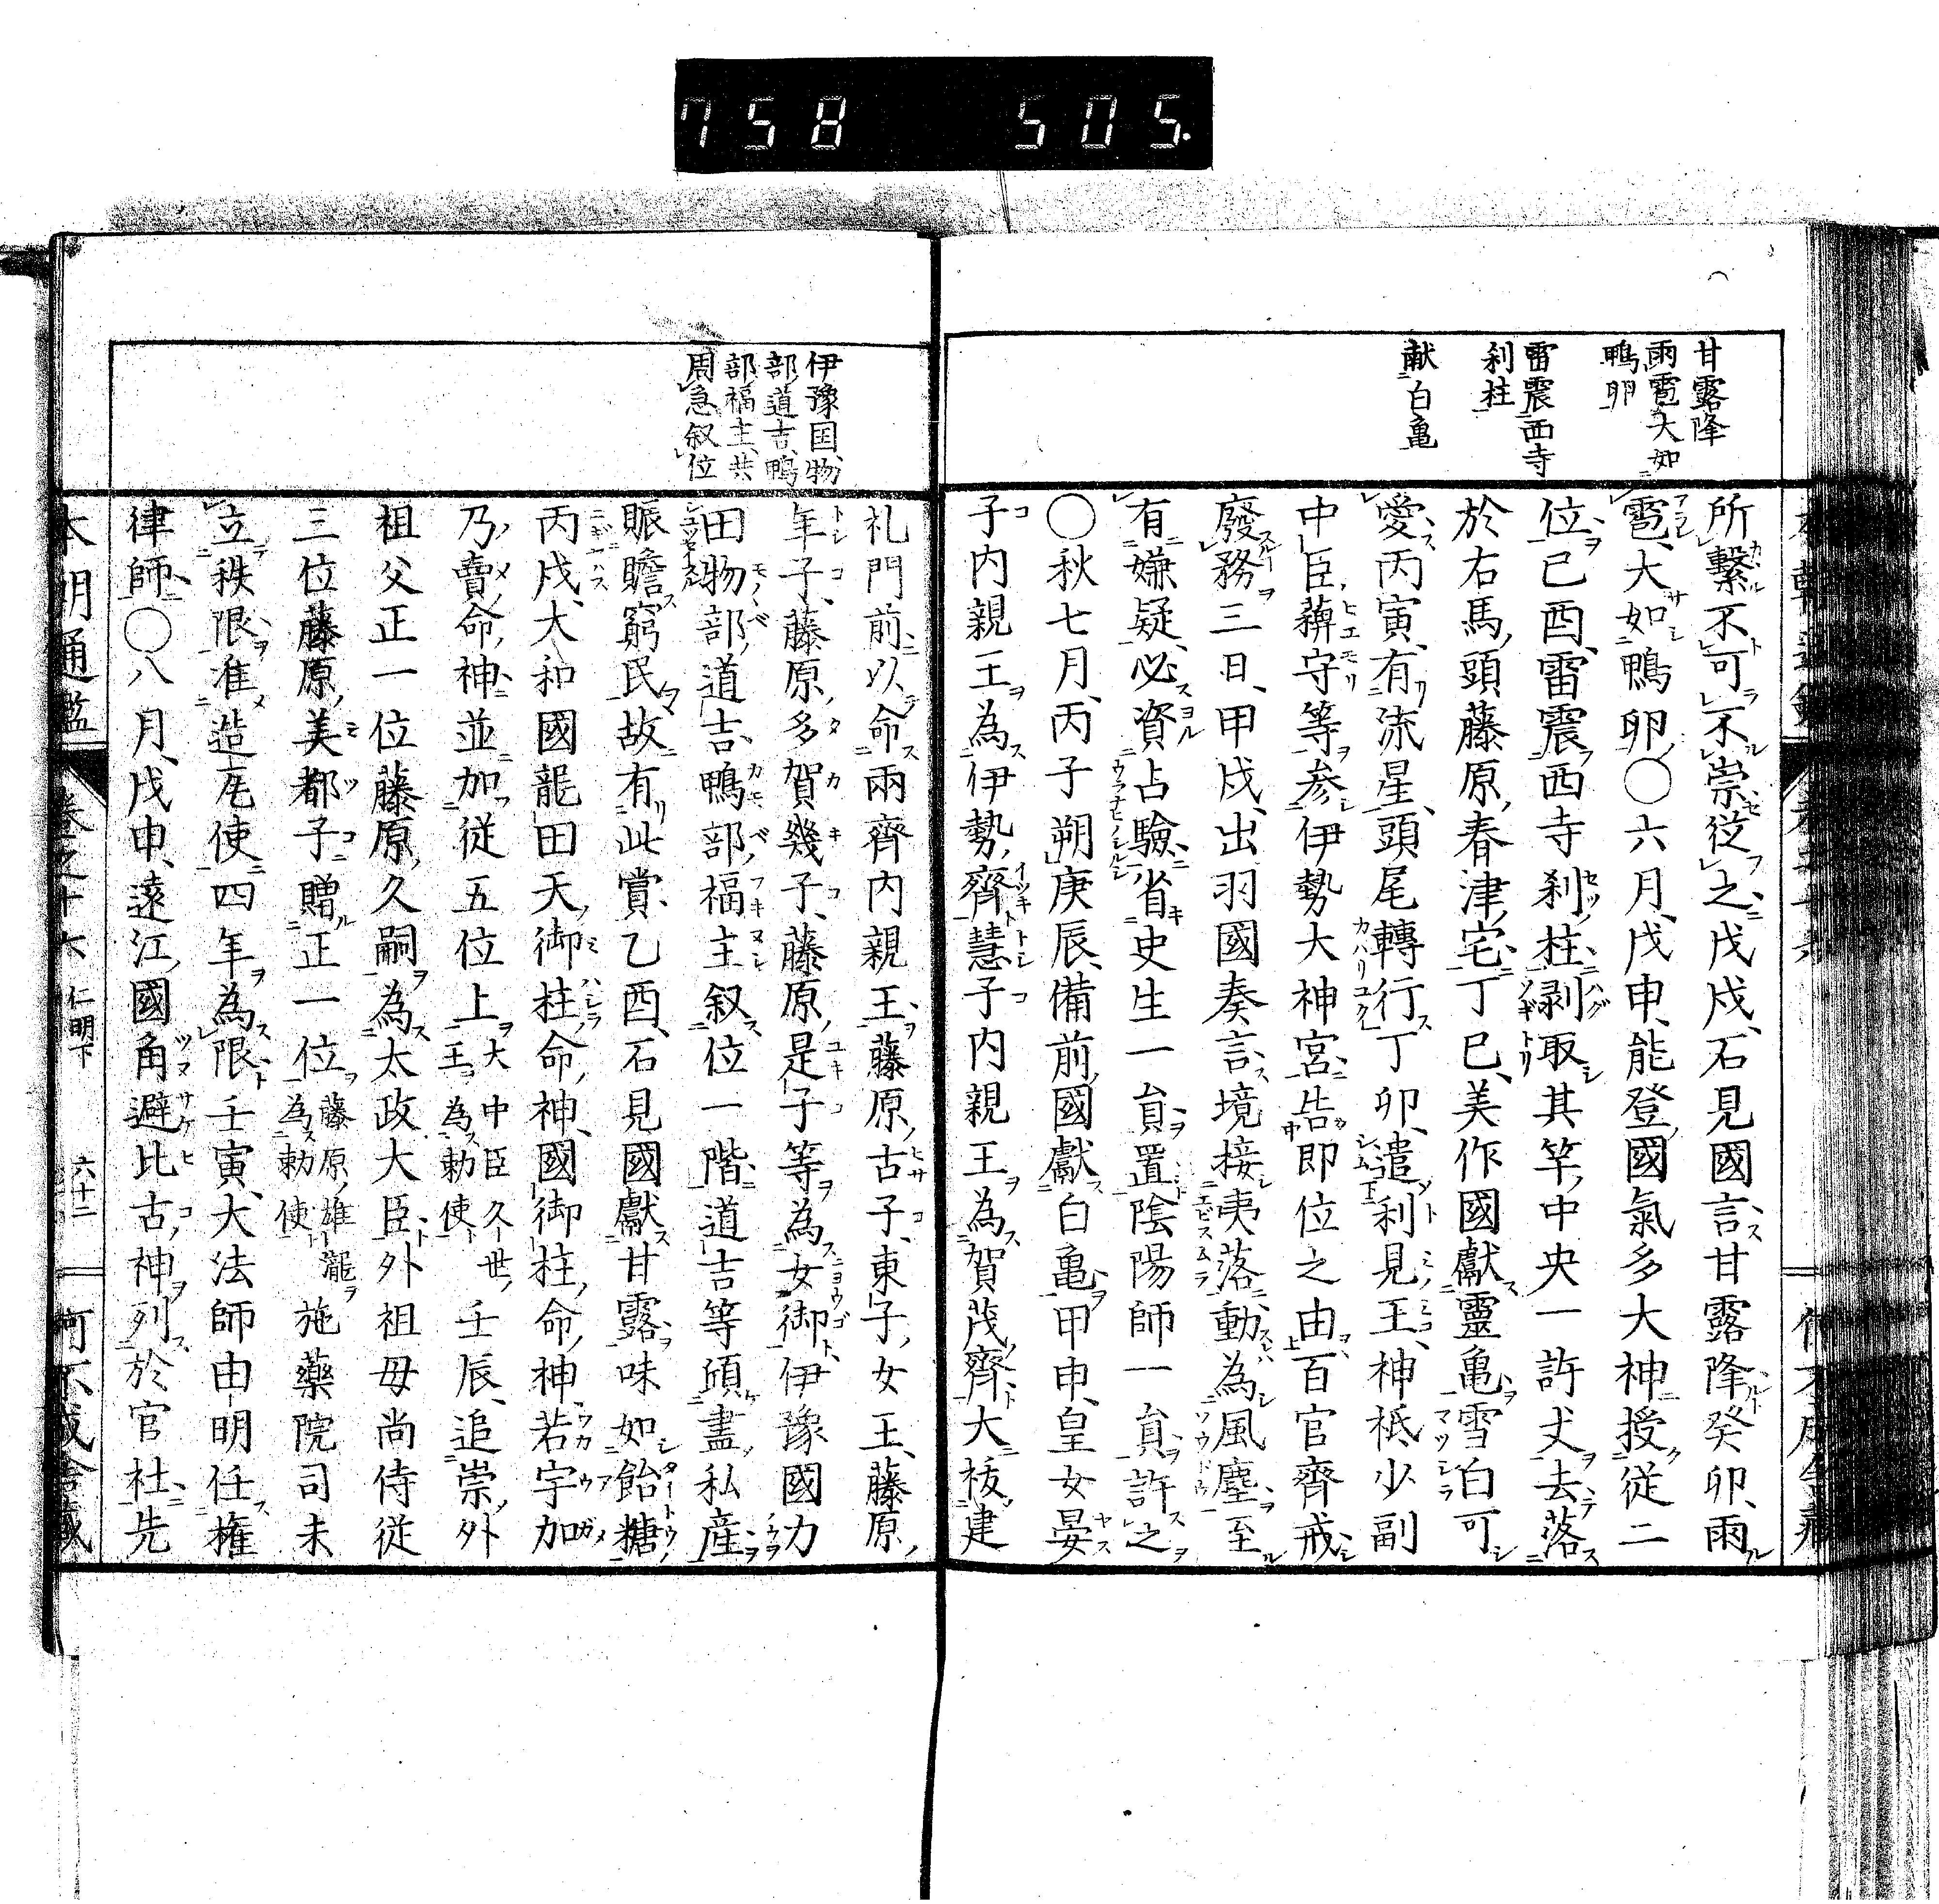 758 505.
甘露降
雨雹大如
鴨卵
雷震西寺
刹柱
献白亀
所繫不可不崇従之戊戌、石見國言甘露降癸卯、雨
雹、大如鴨卵、〇六月、戊申、能登國氣多大神授従二
位己酉、雷震西寺刹柱剥取其竿、中央一許丈去落
於右馬頭藤原春津宅丁巳、美作國獻靈亀雪白可
愛丙寅、有流星、頭尾轉行丁卯、遣利見王、神祇少副
中臣薭守等参伊勢大神宮告即位之由百官齊戒
廢務三日、甲戌、出羽國奏言境接夷落動為風塵至
有嫌疑、必資占驗省史生一員置陰陽師一員許之
〇秋七月、丙子朔庚辰、備前國獻白亀甲申、皇女晏
子内親王為伊勢齊慧子内親王為賀茂齊大祓建
伊豫国物
部道吉、鴨
部福主、共
周急叙位
礼門前以命兩齊内親王藤原古子、東子女王、藤原
年子、藤原多賀幾子、藤原是子等為女御伊豫國力
田物部道吉、鴨部福主叙位一階道吉等傾盡私産
賑贍窮民故有此賞乙酉、石見國獻甘露味如飴糖
丙戌、大和國龍田天御柱命神、國御柱命神若宇加
乃賣命神並加従五位上大中臣久世王為勅使壬辰、追崇外
祖父正一位藤原久嗣為太政大臣外祖母尚侍従
三位藤原美都子贈正一位藤原雄瀧為勅使施藥院司未
立秩限准造瓦使四年為限壬寅、大法師由明任權
律師〇八月、戊申、遠江國角避比古神列於官社先
本朝通鑑 卷之十六 仁明下 六十二